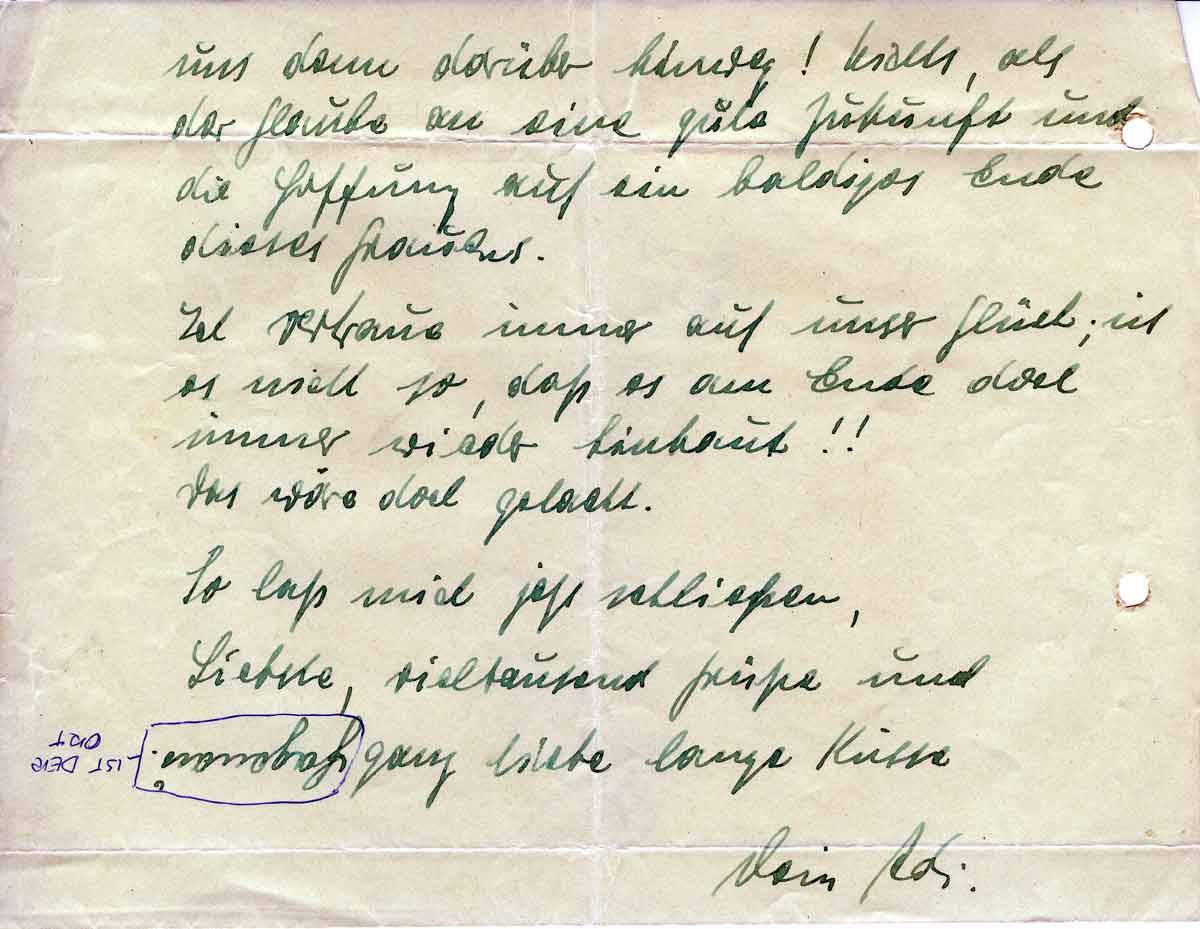 uns dann darüber hinweg! Nichts, als
der Glaube an eine gute Zukunft und
die Hoffung auf ein baldiges Ende
dieses Grauens.
Ich vertraue immer auf unser Glück; ist
es nicht so, daß es am Ende doch
immer wieder hinhaut!!
Das wäre doch gelacht.
So laß mich jetzt schließen,
Liebste, vieltausend Grüße und
ganz liebe lange Küsse
IST DER
ORT
Dein Adi.